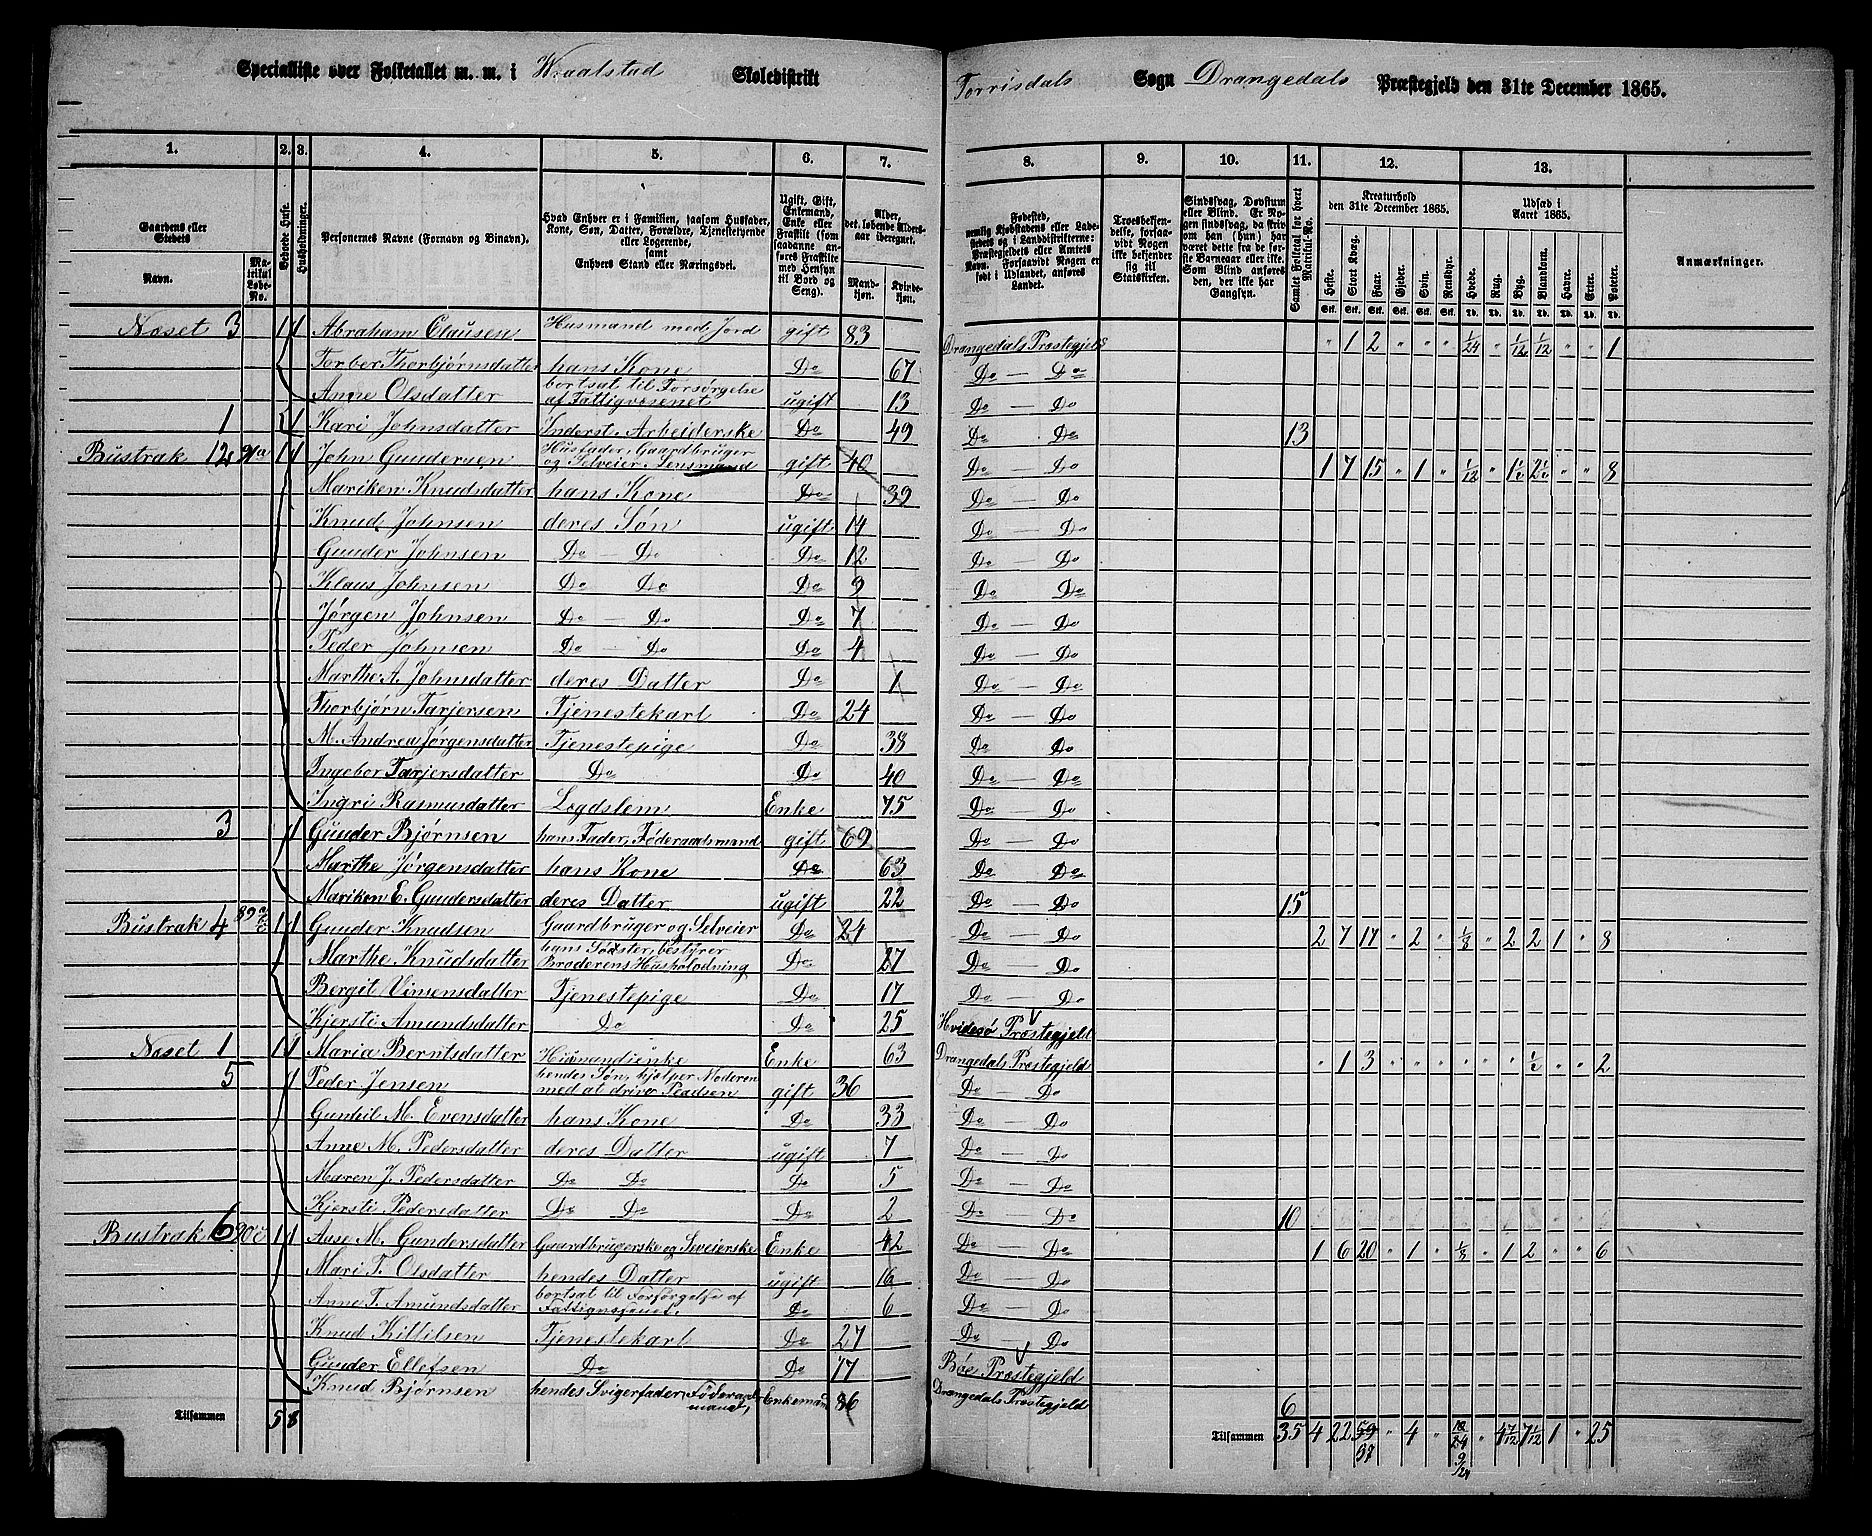 Specialliste over Folketallet m. m. i Kraalstad Skoledistrikt Torrisdals Sogn Drangedals Præstegjeld den 31te December 1865.
1. 2. 3. 4. 5. 6. 7. 8. 9. 10. 11. 12. 13.
Gaardens eller Stedets
Navn. Matrikul Løbe-No.
Beboede Huse.
Husholdninger.
Personernes Navne (Fornavn og Binavn).
Hvad Enhver er i Familien, saasom Husfader, Kone, Søn, Datter, Forældre, Tjenestetyende eller Logerende, samt Enhvers Stand eller Næringsvei.
Ugift, Gift, Enkemand, Enke eller Fraskilt (som saadanne anføres Fraskilte med Hensyn til Bord og Seng).
Alder, det løbende Aldersaar iberegnet.
Mandkjøn. Kvindekjøn.
Fødested, nemlig Kjøbstadens eller Ladestedets og i Landdistrikterne: Præstegjeldets eller Amtets Navn. Forsaavidt Nogen er født i Udlandet, anføres Landet.
Troesbekjendelse, forsaavidt Nogen ikke bekjender sig til Statskirken.
Sindssvag, Døvstum eller Blind. Er Nogen sindssvag, da skrives om han (hun) har været dette fra de første Barneaar eller ikke. Som Blind anføres den, der ikke har Gangsyn.
Samlet Folketal for hvert Matrikul-No.
Kreaturhold den 31te December 1865.
Heste. Stort Kvæg. Faar. Gjeder. Svin. Rensdyr.
Udsæd i Aaret 1865.
Hvede. Rug. Byg. Blandkorn. Havre. Erter. Poteter.
Anmærkninger.
Næset 3 1 1 Abraham Clausen Husmand med Jord gift 83 Drangedals Præstegjeld " 1 2 " " " 1/24 " 1/12 1/12 " " 1
Torber Thorbjørnsdatter hans Kone Do 67 Do — Do
Anne Olsdatter bortsat til Forsørgelse af Fattigvæsenet ugift 13 Do — Do
1 1 Kari Johnsdatter Inderst. Arbeiderske Do 49 Do Do 13
Bustrak 12 90a 1 1 John Gundersen Husfader, Gaardbruger og Selveier, Lensmand gift 40 Do — Do 1 7 15 " 1 " 1/12 " " " 8
Mariken Knudsdatter hans Kone Do 39 Do — Do
Knud Johnsen deres Søn ugift 14 Do — Do
Gunder Johnsen Do — Do Do 12 Do — Do
Klaus Johnsen Do Do Do 9 Do Do
Jørgen Johnsen Do — Do Do 7 Do — Do
Peder Johnsen Do — Do Do 4 Do — Do
Marthe A. Johnsdatter deres Datter Do 1 Do — Do
Thorbjørn Tarjersen Tjenestekarl Do 24 Do — Do
M. Andrea Jørgensdatter Tjenestepige Do 38 Do Do
Ingebor Tarjersdatter Do Do 40 Do — Do
Ingri Rasmusdatter Lægdslem Enke 75 Do — Do
3 1 Gunder Bjørnsen hans Fader, Føderaadsmand gift 69 Do — Do
Marthe Jørgensdatter hans Kone Do 63 Do — Do
Mariken E. Gundersdatter deres Datter ugift 22 Do — Do 15
Bustrak 4 89 1 1 Gunder Knudsen Gaardbruger og Selveier Do 24 Do — Do 2 7 17 " 2 " 1/8 " 2 2 1 " 8
Marthe Knudsdatter hans Søster, bestyrer Broderens Husholdning Do 27 Do — Do
Bergit Vinsensdatter Tjenestepige Do 17 Do — Do
Kjersti Amundsdatter Do Do 25 Hvidesø Præstegjeld
Næset 1 1 1 Maria Berntsdatter Husmandsenke Enke 63 Drangedals Præstegjeld " 1 3 " " " " " " " " 2
5 1 Peder Jensen hendes Søn, hjelper Moderen med at drive Pladsen gift 36 Do — Do
Gunhil M. Evensdatter hans Kone Do 33 Do — Do
Anne M. Pedersdatter deres Datter ugift 7 Do — Do
Maren J. Pedersdatter Do Do Do 5 Do — Do
Kjersti Pedersdatter Do Do Do 2 Do — Do 10
Bustrak 6 90c 1 1 Aase M. Gundersdatter Gaardbrugerske og Selveierske Enke 42 Do Do 1 6 20 " 1 " 1/8 " 1 2 " " 6
Mari T. Olsdatter hendes Datter ugift 16 Do — Do
Anne T. Amundsdatter bortsat til Forsørgelse af Fattigvæsenet. Do 6 Do — Do
Knud Kittilsen Tjenestekarl Do 27 Do — Do
Gunder Ellefsen Do Do 17 Bøe Præstegjeld
Knud Bjørnsen hendes Svigerfader, Føderaadsmand, Enkemand 86 Drangedals Præstegjeld 6
Tilsammen 5 8 Tilsammen 35 4 22 59 " 4 " " 1 " 25